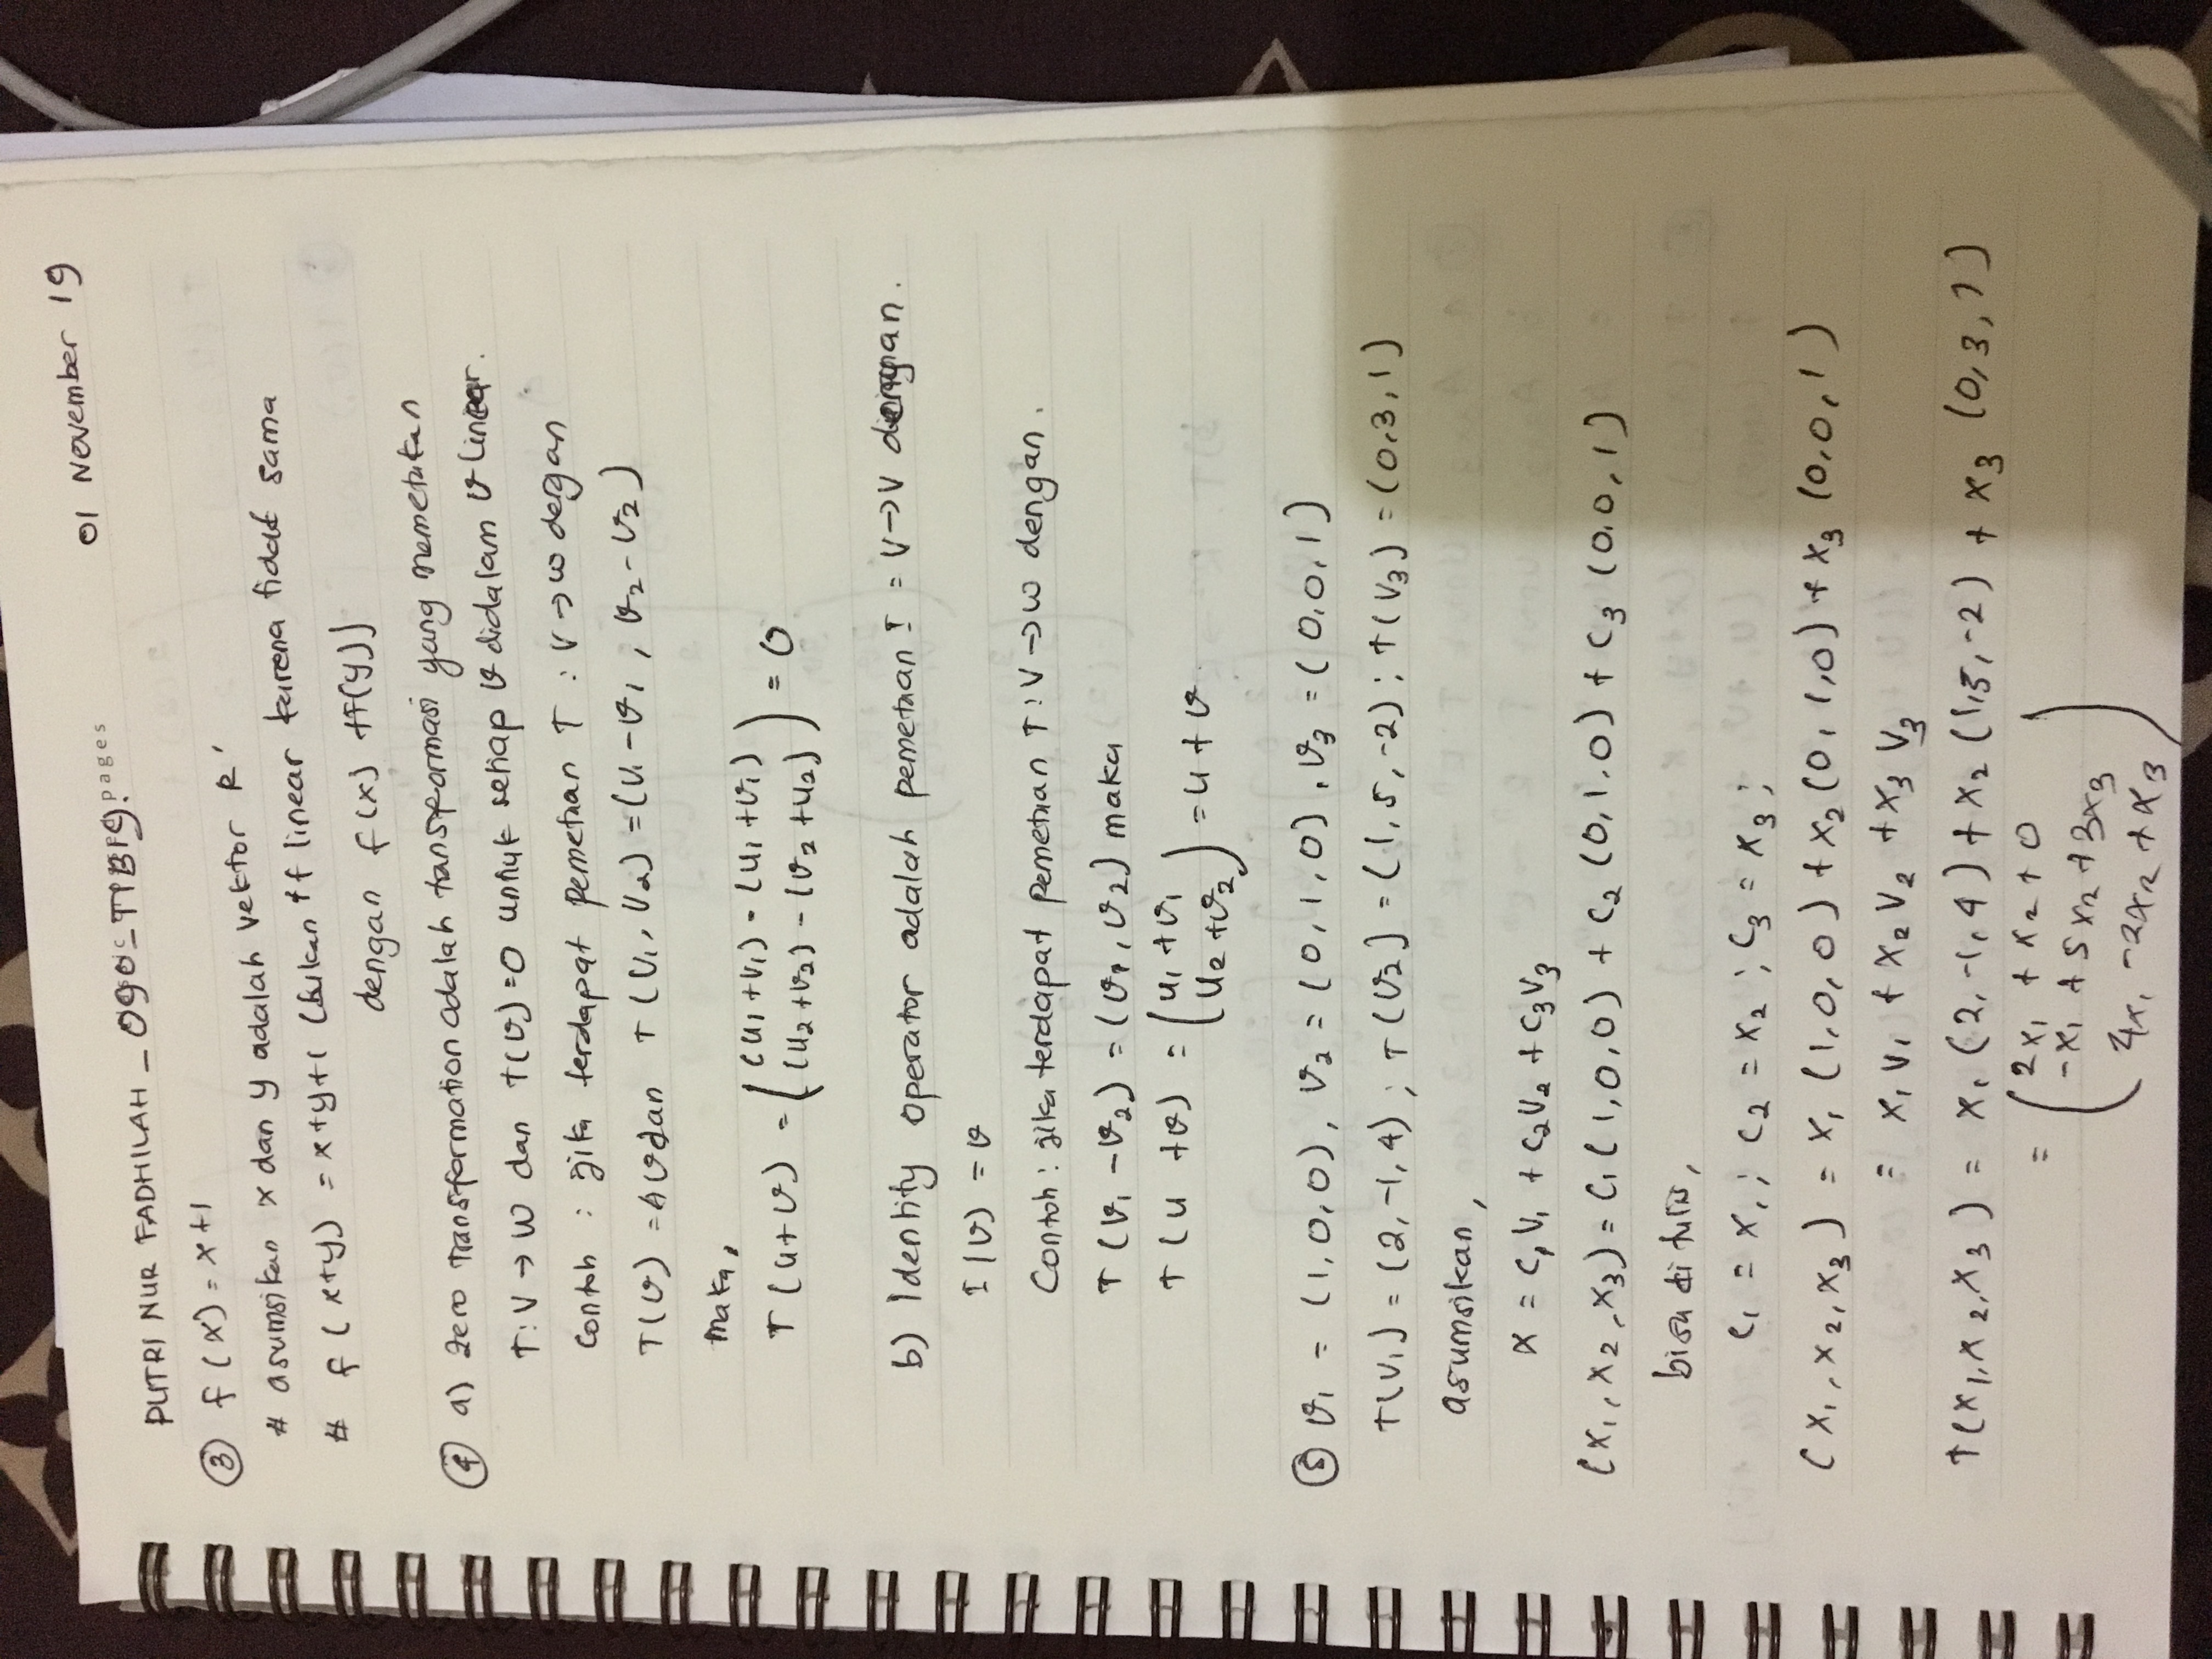 01 November 19
pages
PUTRI NUR FADHILAH _ 090_TIB19.
③ f(x) = x+1
# asumsikan x dan y adalah vektor R'
# f(x+y) = x+y+1 (bukan tf linear karena tidak sama
dengan f(x) +f(y))
④ a) Zero Transformation adalah tansformasi yang memetakan
T:V→W dan T(v)=0 untuk setiap v didalam v linear.
Contoh : jika terdapat pemetaan T : V→W dengan
T(v) = Av dan T(v₁, v₂) = (v₁-v₁, v₂-v₂)
maka,
T(u+v) = ( (u₁+v₁) - (u₁+v₁)
(u₂+v₂) - (v₂+u₂) ) = 0
b) Identity operator adalah pemetaan I = V→V dengan.
I(v) = v
Contoh : jika terdapat pemetaan T:V→W dengan.
T(v₁ -v₂) = (v₁, v₂) maka
T(u +v) = ( u₁+v₁
u₂+v₂ ) = u+v
⑤ v₁ = (1,0,0), v₂ = (0,1,0), v₃ = (0,0,1)
T(v₁) = (2,-1,4) ; T(v₂) = (1,5,-2) ; T(v₃) = (0,3,1)
asumsikan,
x = c₁v₁ + c₂v₂ + c₃v₃
(x₁,x₂,x₃) = c₁(1,0,0) + c₂(0,1,0) + c₃(0,0,1)
bisa di tulis,
c₁ = x₁ ; c₂ = x₂ ; c₃ = x₃ ;
(x₁,x₂,x₃) = x₁(1,0,0) + x₂(0,1,0) + x₃(0,0,1)
= x₁v₁ + x₂v₂ + x₃v₃
T(x₁,x₂,x₃) = x₁(2,-1,4) + x₂(1,5,-2) + x₃(0,3,1)
= ( 2x₁ + x₂ + 0
-x₁ + 5x₂ + 3x₃
4x₁ -2x₂ + x₃ )